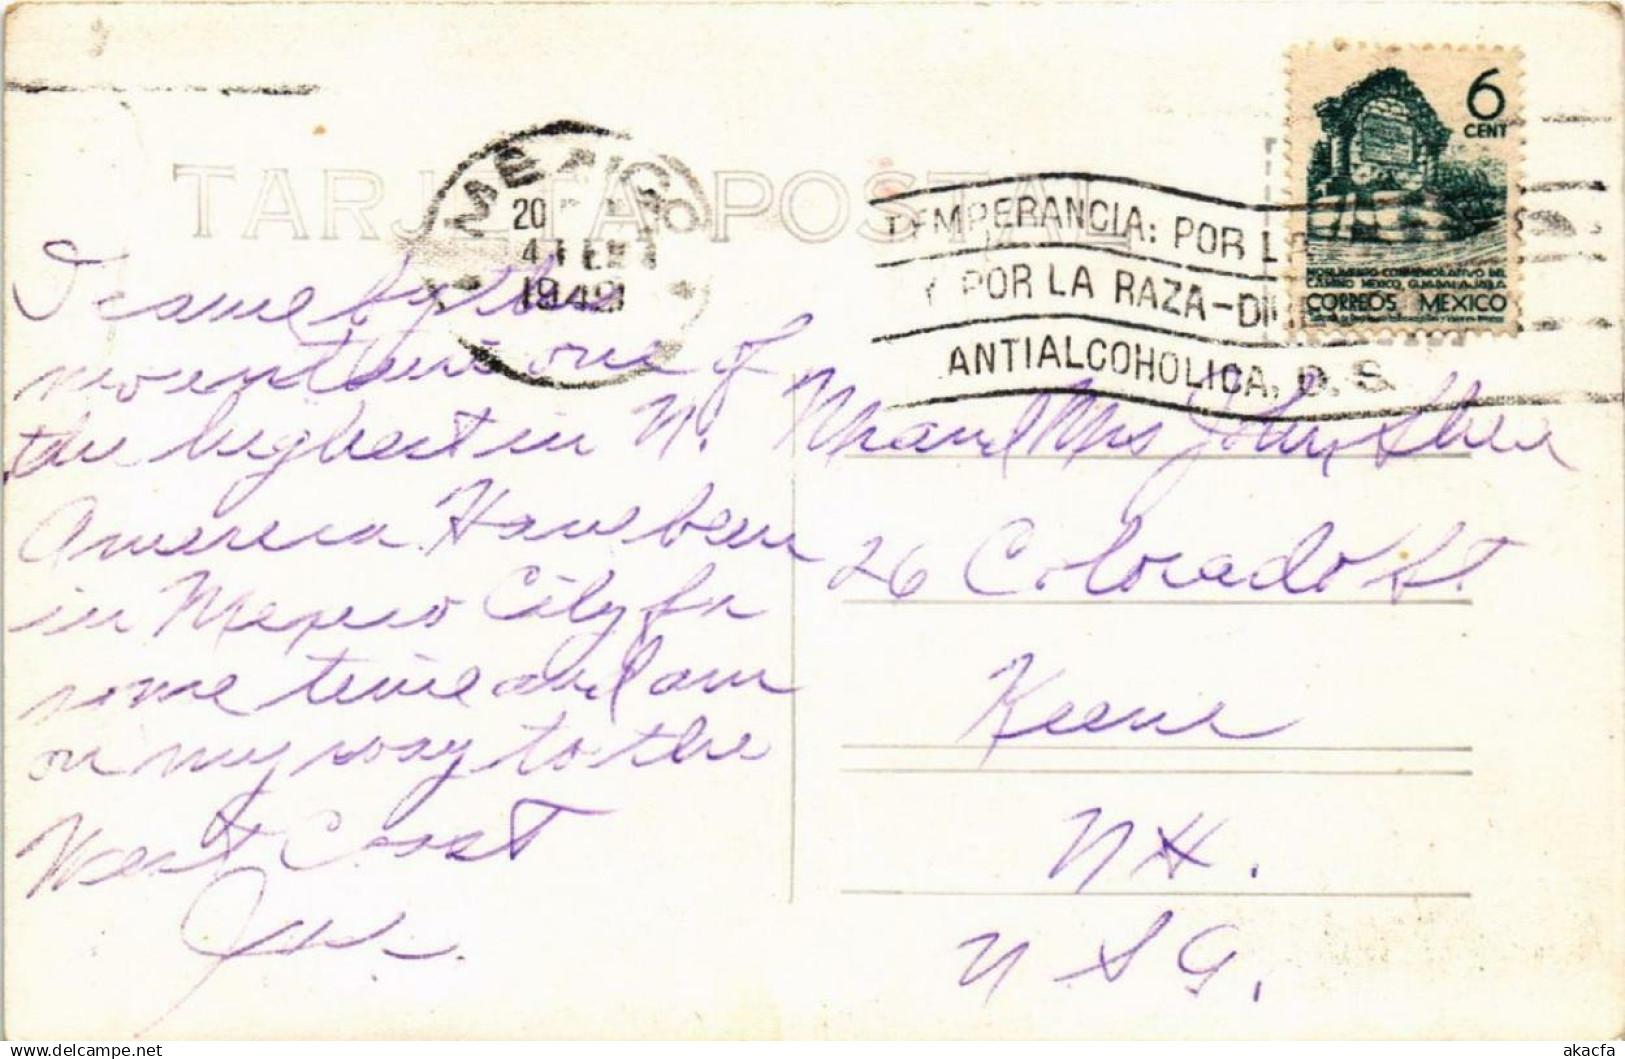 TARJETA POSTAL
MEXICO
20
4 FEB
1942
TEMPERANCIA: POR L
Y POR LA RAZA-DI
ANTIALCOHOLICA, D. S.
6
CENT
MONUMENTO CONMEMORATIVO DEL
CAMINO MEXICO, GUADALAJARA
CORREOS MEXICO
I came by this
mountain one of
the highest in N.
America. Have been
in Mexico City for
some time and am
on my way to the
West Coast
Mr and Mrs John Shea
26 Colorado St.
Keene
N H.
U S A.
akacfa